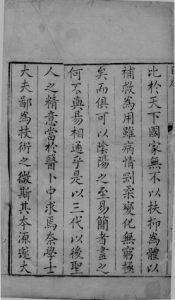 比於天下國家無不以扶抑為體以
補救為用雖病情劇柔變化無窮極
矣而俱可以陰陽之至易簡者盡之
何不與易相通乎是以三代以後聖
人之精意當於醫卜中求焉奈學士
大夫鄙為技術之微斯其本源邈大